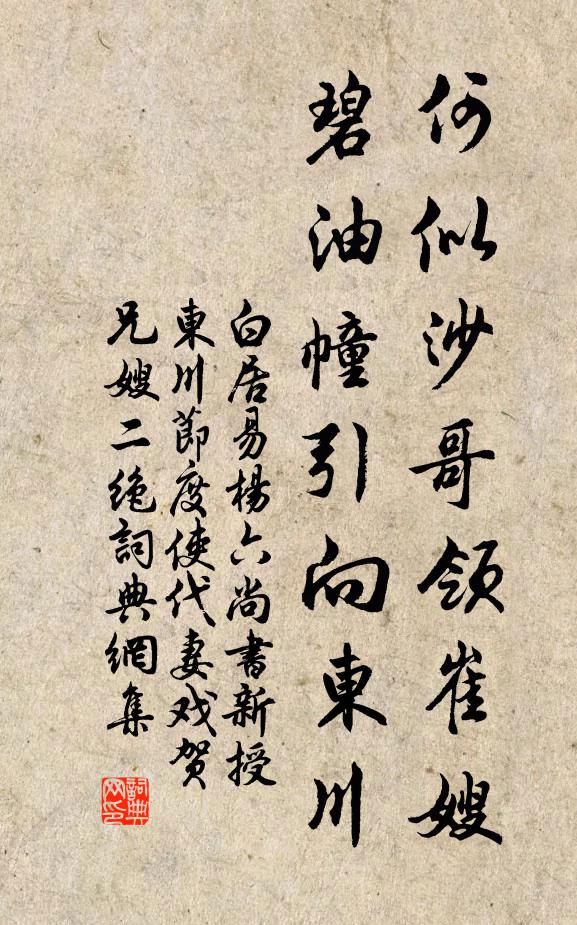 何似沙哥領崔嫂
碧油幢引向東川
白居易楊六尚書新授
東川節度使代妻戏贺
兄嫂二绝詞典網集
詞典网印